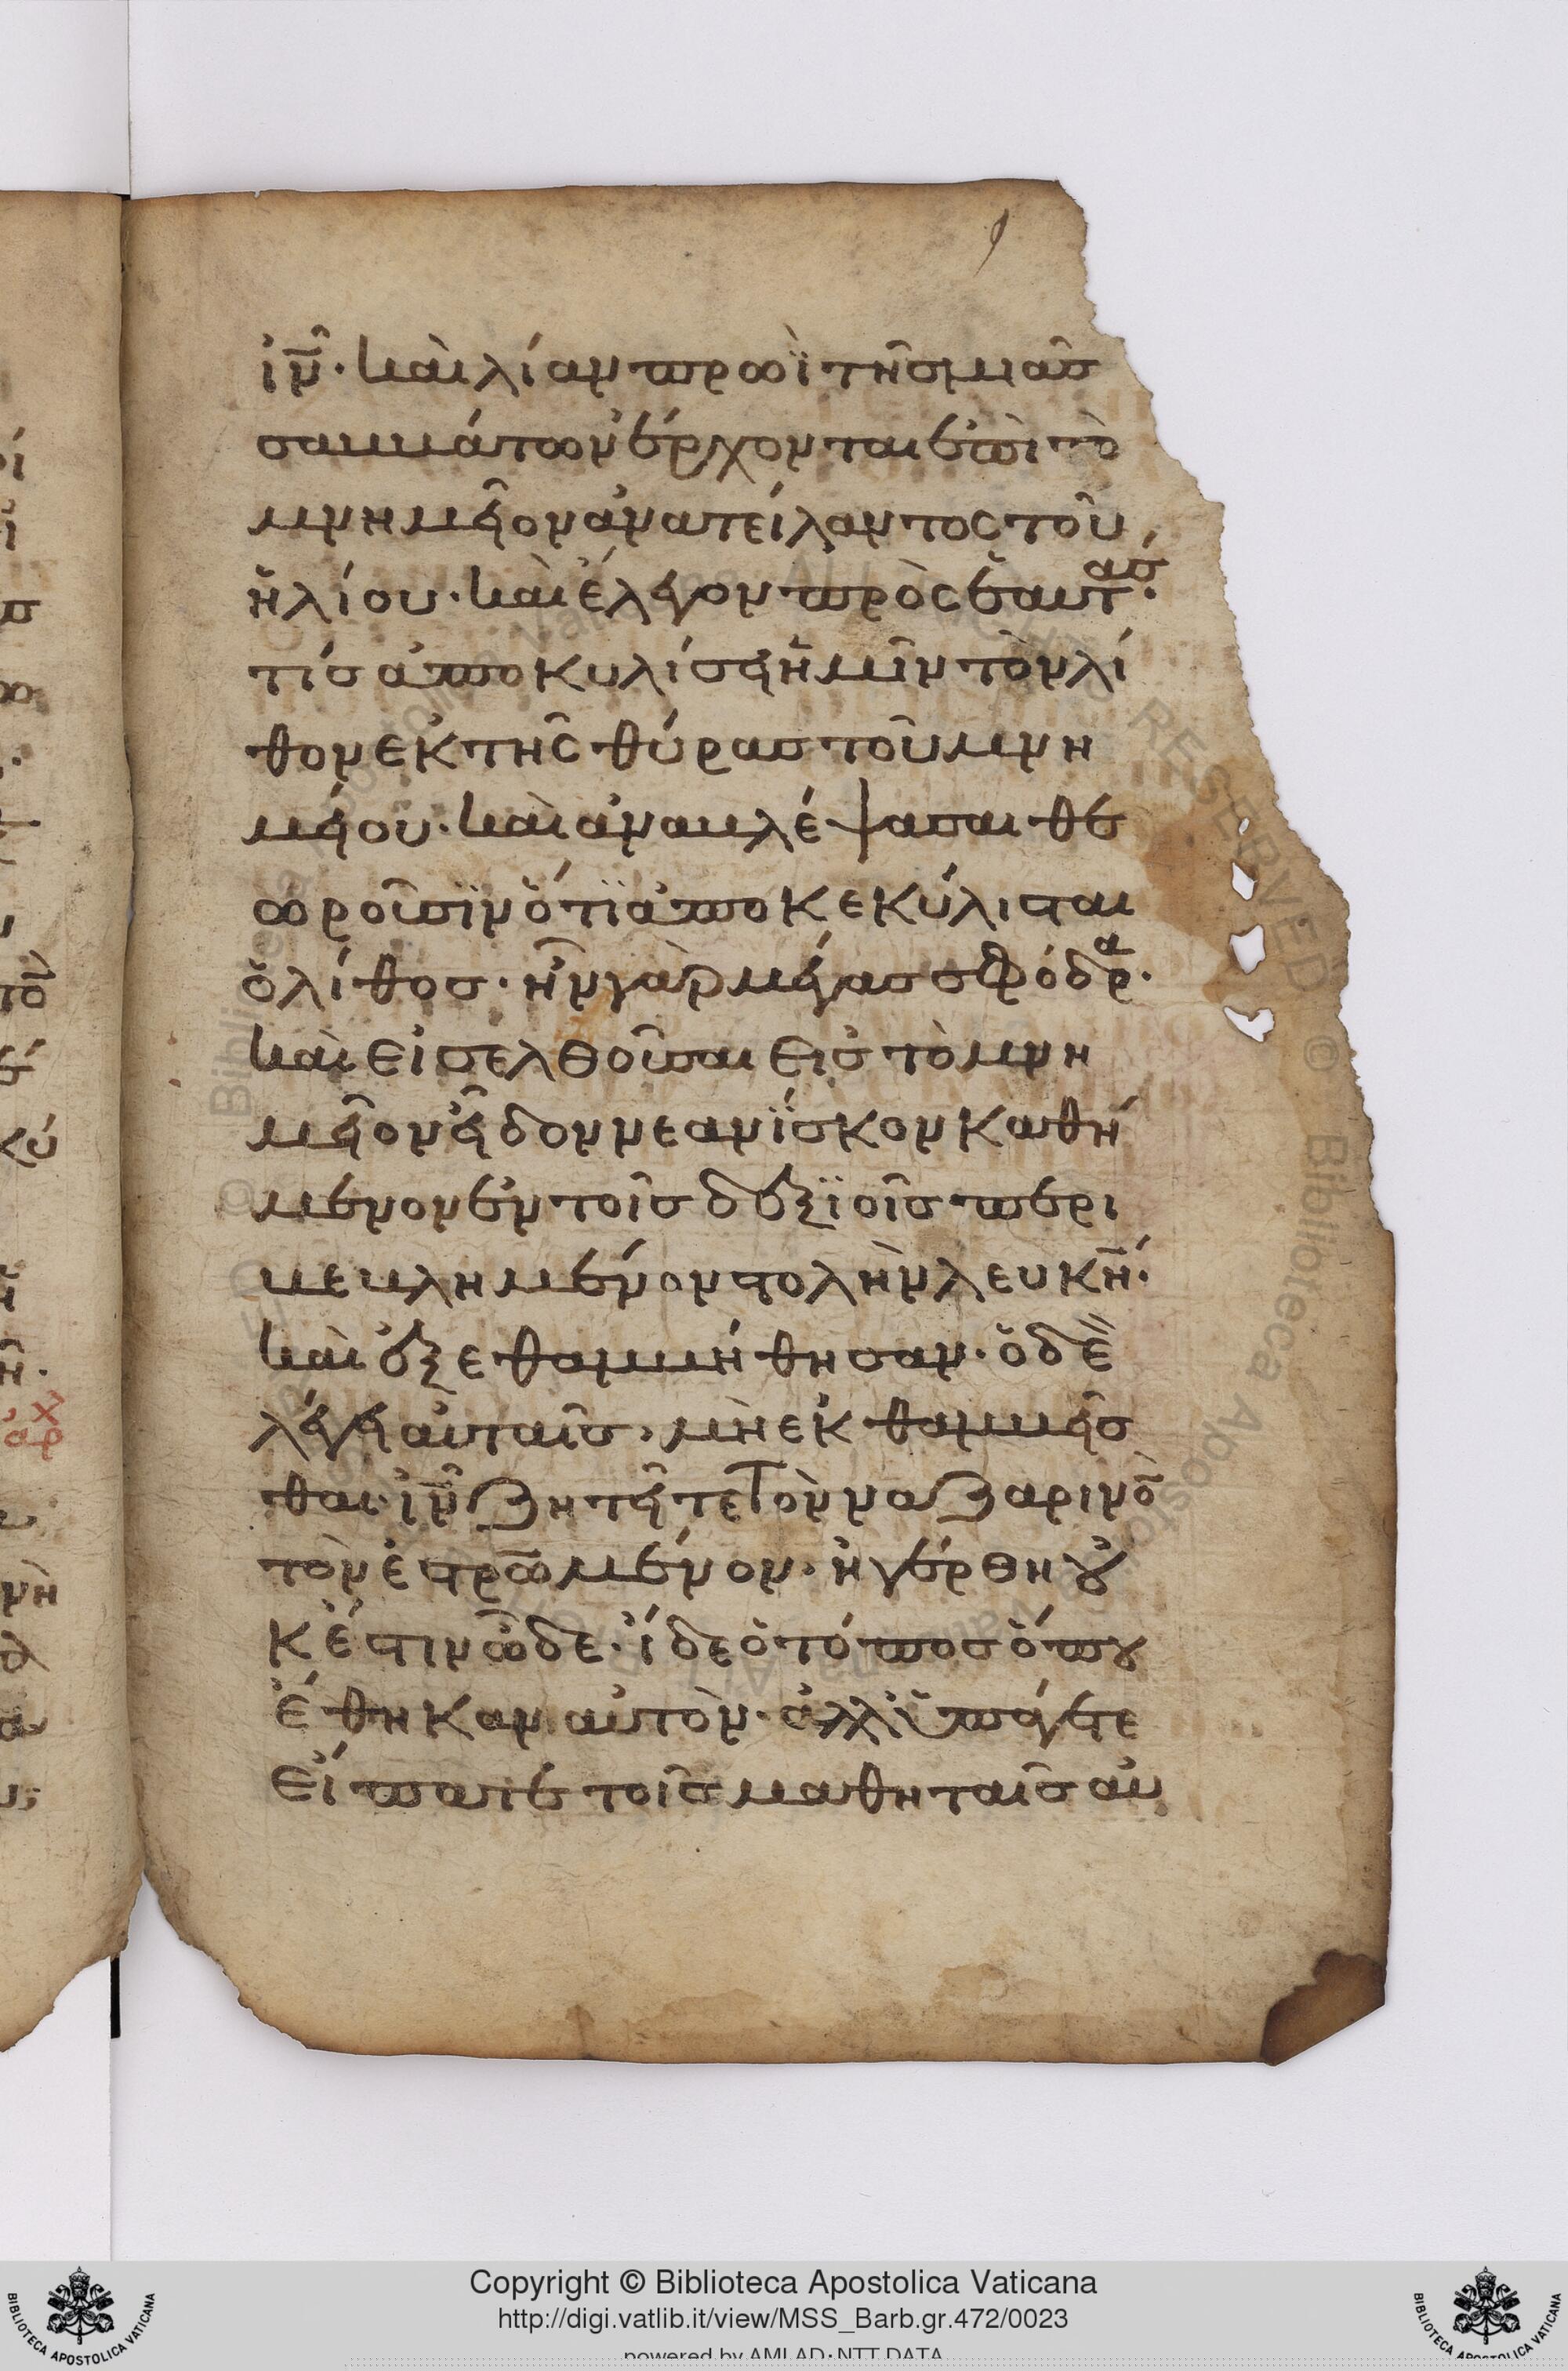 ἰν̅· καὶ λίαν πρωῒ τῆς μιᾶς
σαββάτων ἔρχονται ἐπὶ τὸ
μνημεῖον ἀνατείλαντος τοῦ
ἡλίου· καὶ ἔλεγον πρὸς ἑαυτάσ·
τίς ἀποκυλίσει ἡμῖν τὸν λί
θον ἐκ τῆς θύρας τοῦ μνη
μείου· καὶ ἀναβλέψασαι θε
ωροῦσϊν ὅτϊ ἀποκεκύλισται
ὁ λίθος· ἦν γὰρ μέγας σφόδρα·
καὶ εἰσελθοῦσαι εἰς τὸ μνη
μεῖον εἶδον νεανΐσκον καθή
μενον ἐν τοῖς δεξϊοῖς περι
βεβλημένον στολὴν λευκήν·
καὶ ἐξεθαμβήθησαν· ὁ δὲ
λέγει αὐταῖς· μὴ ἐκθαμβεῖσ
θαι· ἰν̅ ζητεῖτε τὸν ναζαρινὸ̅
τὸν ἐστρω̅μένον· ἠγέρθη οὐ
κ ἔστιν ὧδε· ἴδε ὁ τόπος ὅπου
ἔθηκαν αὐτὸν· ἀλλ' ὑπάγετε
εἴπατε τοῖς μαθηταῖς αὐ
Copyright © Biblioteca Apostolica Vaticana
http://digi.vatlib.it/view/MSS_Barb.gr.472/0023
powered by AMLAD·NTT DATA
BIBLIOTECA APOSTOLICA VATICANA
BIBLIOTECA APOSTOLICA VATICANA